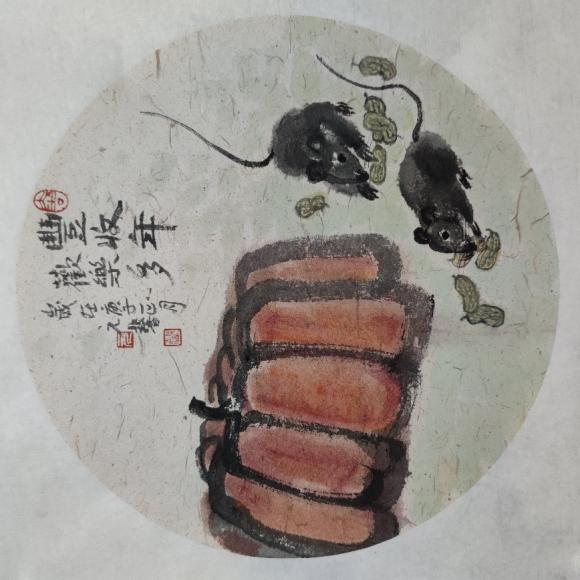 豐收年
歡樂多
歲在庚子正月